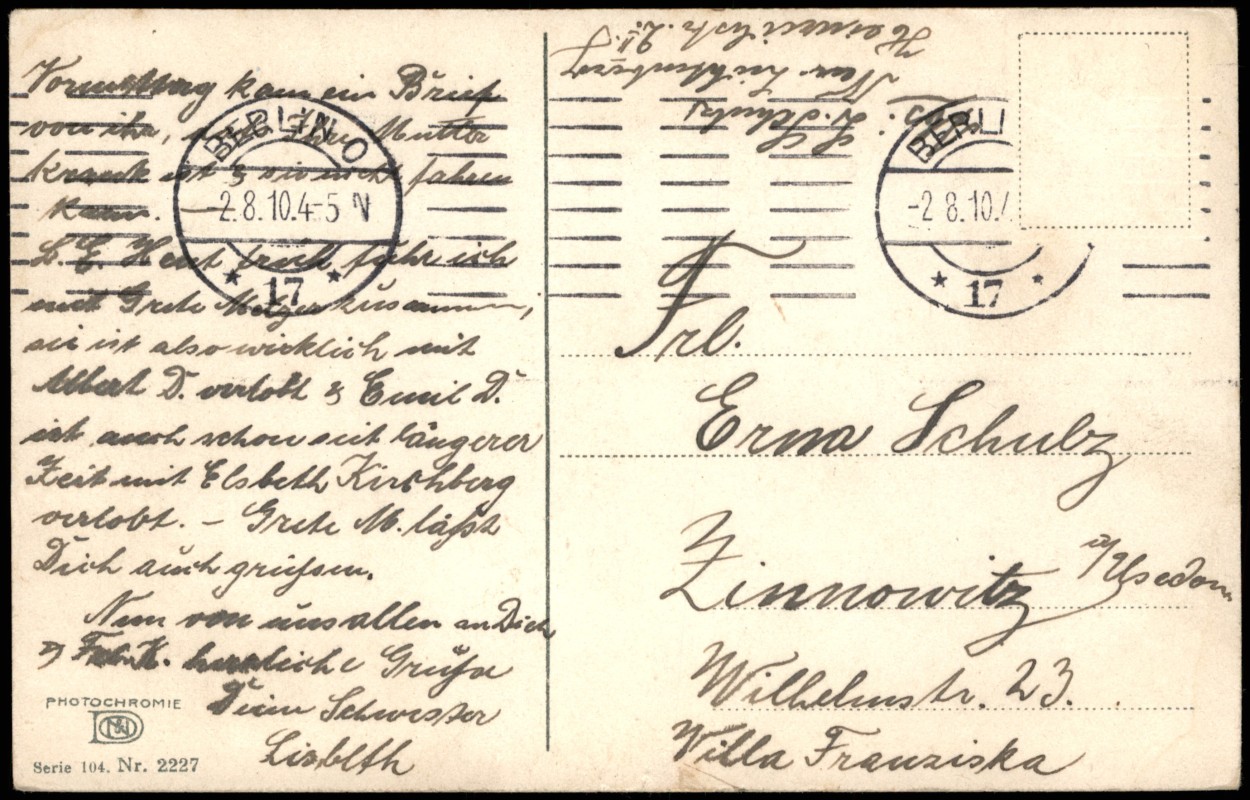 Vormittag kam ein Brief
von ihr, Mutter
krank ist & sie nicht fahren
kann. —
L. E. Heut früh fuhr ich
mit Grete Metzger zusammen,
sie ist also wirklich mit
Albert D. verlobt & Emil D.
ist auch schon seit längerer
Zeit mit Elsbeth Kirchberg
verlobt. – Grete M. läßt
Dich auch grüßen.
Nun von uns allen an Dich
& Frl. K. herzliche Grüße
Deine Schwester
Lisbeth
PHOTOCHROMIE
Serie 104. Nr. 2227
BERLIN O
-2.8.10.4-5 N
* 17 *
BERLI
-2 8.10.
* 17 *
L. Schulz
Neu Lichtenberg
Frl.
Erna Schulz
Zinnowitz a/Usedom
Wilhelmstr. 23.
Villa Franziska